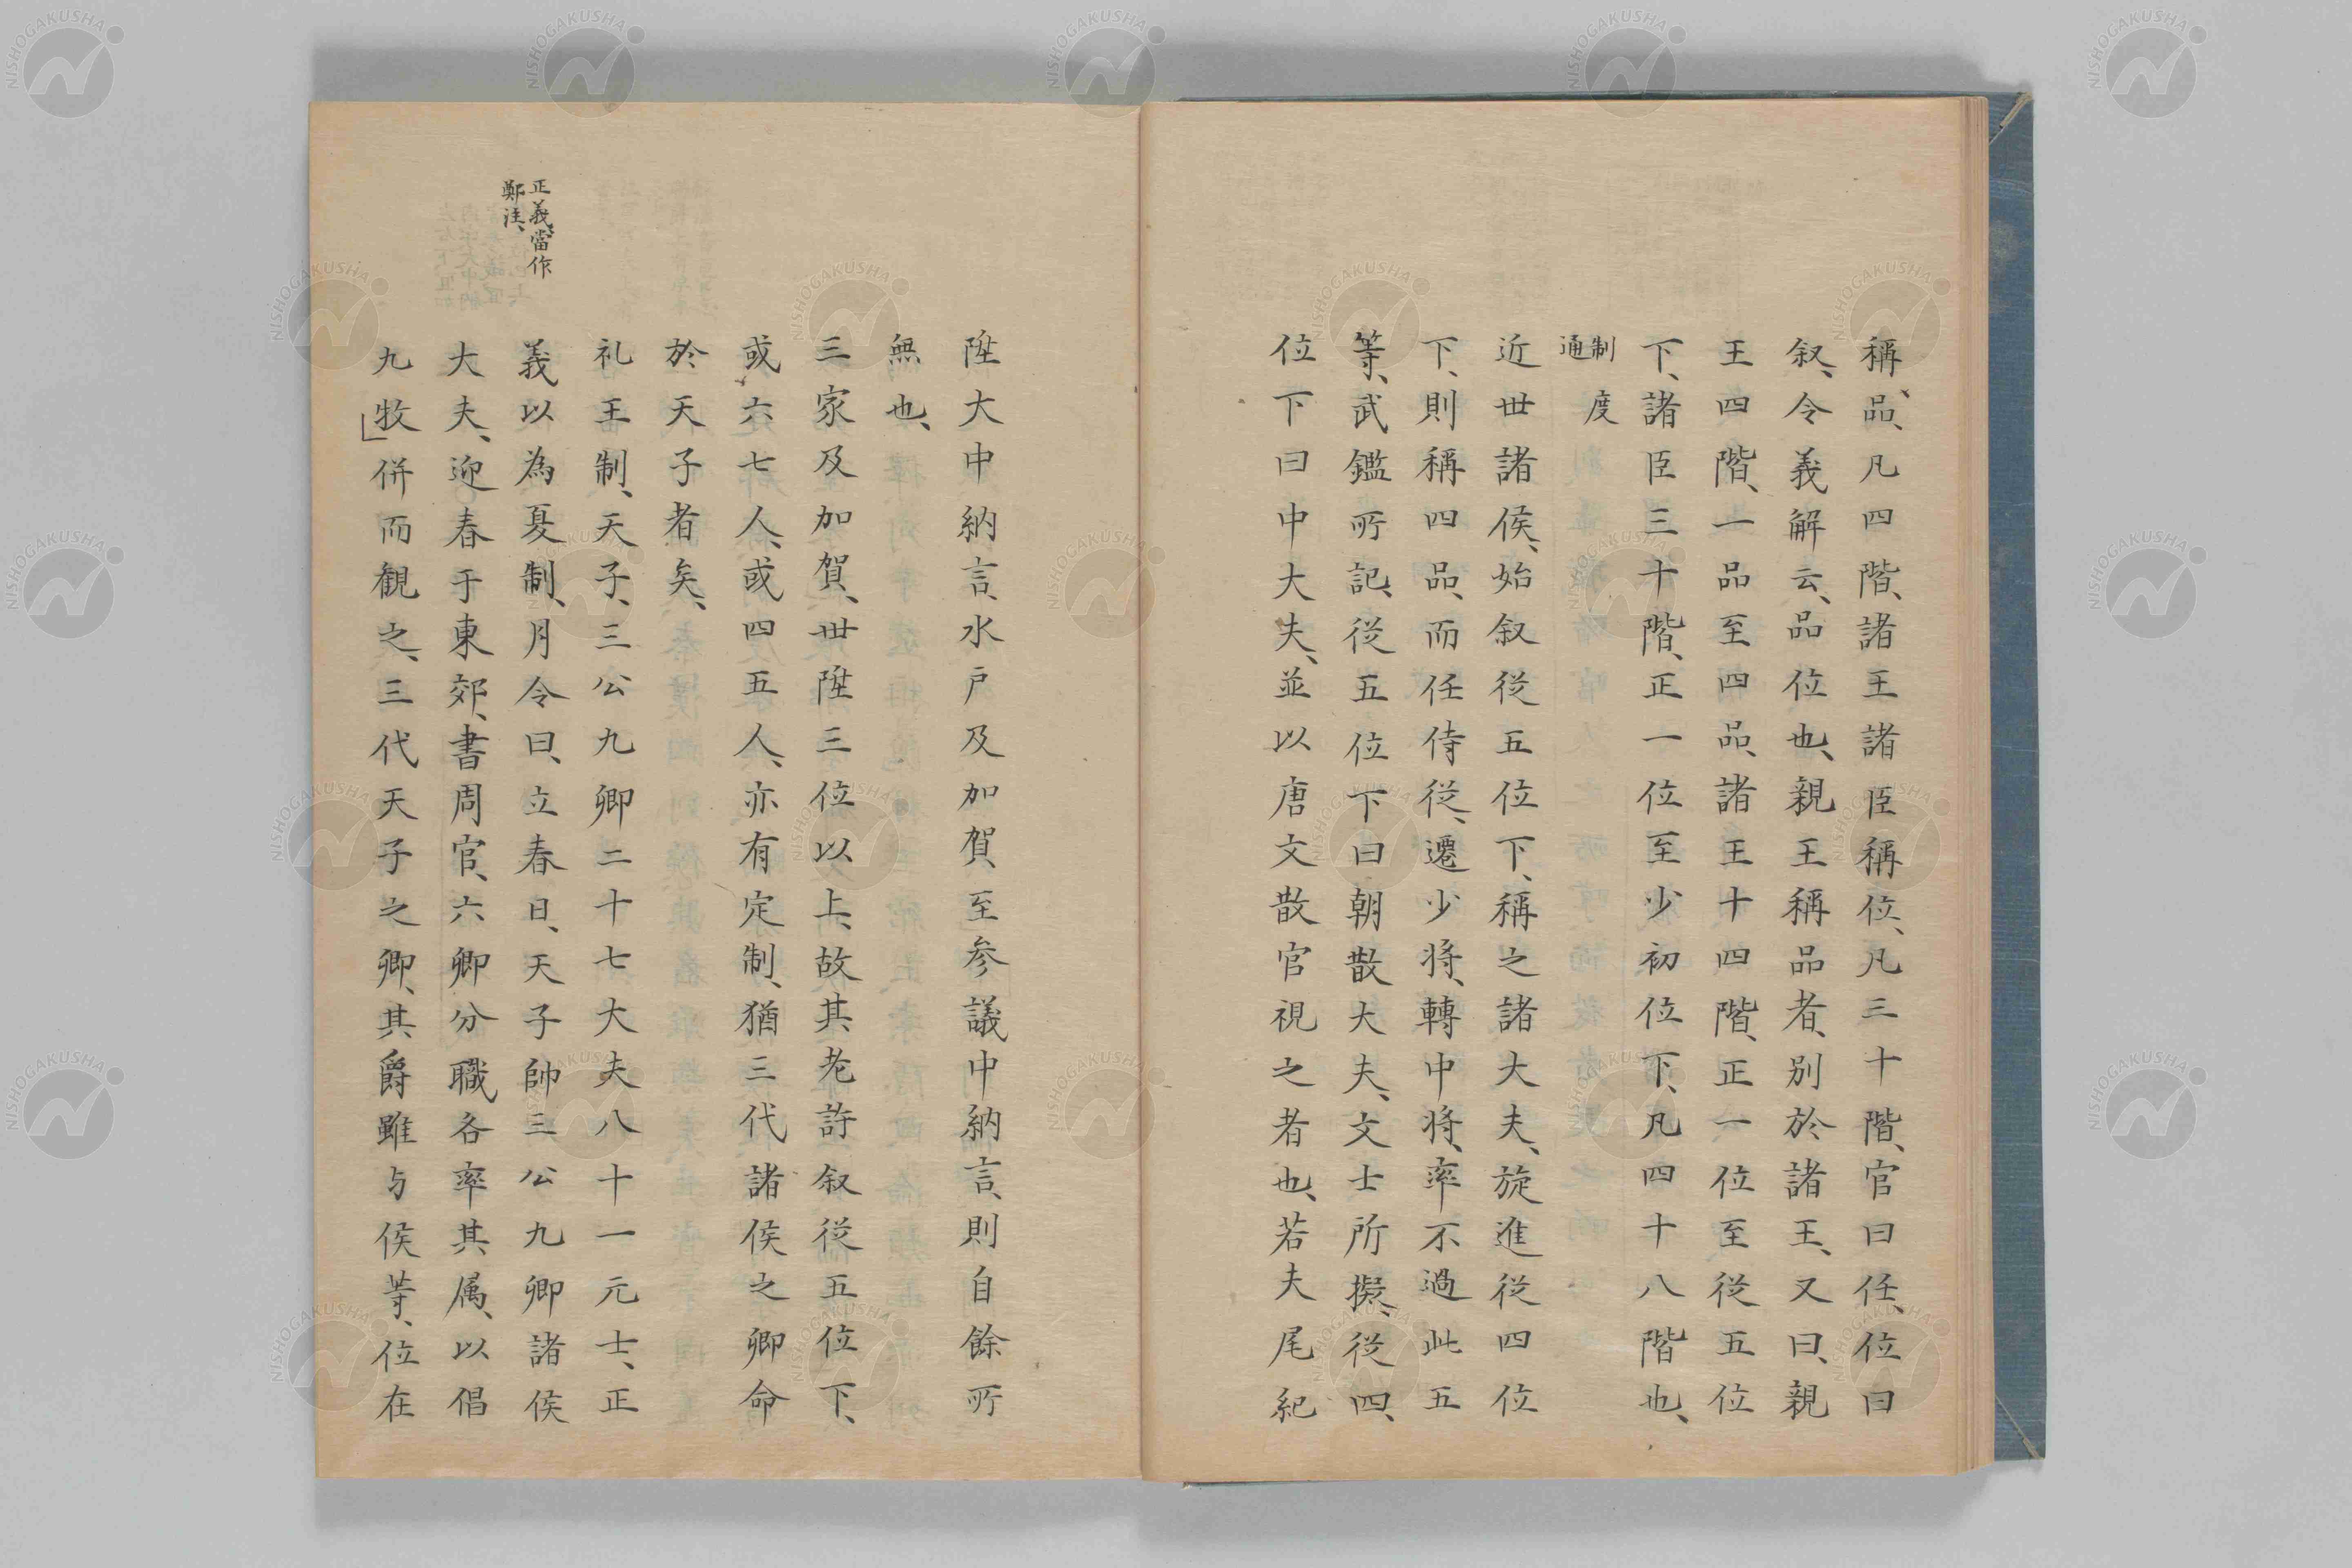 稱、品、凡四階、諸王諸臣稱位、凡三十階、官曰任、位曰
叙、令義解云、品位也、親王稱品者、別於諸王、又曰、親
王四階、一品至四品、諸王十四階、正一位至從五位
下、諸臣三十階、正一位至少初位下、凡四十八階也、
制度
通
近世諸侯、始叙從五位下、稱之諸大夫、旋進從四位
下、則稱四品、而任侍從、遷少將、轉中將、率不過此五
等、武鑑所記、從五位下曰朝散大夫、文士所擬、從四、
位下曰中大夫、並以唐文散官視之者也、若夫尾紀
陞大中納言、水戶及加賀、至参議中納言、則自餘所
無也、
三家及加賀、世陞三位以上、故其老許叙從五位下、
或六七人、或四五人、亦有定制、猶三代諸侯之卿命
於天子者矣、
礼王制、天子、三公九卿二十七大夫八十一元士、正
義以為夏制、月令曰、立春日、天子帥三公九卿諸侯
大夫、迎春于東郊、書周官、六卿分職各率其属、以倡
九牧、併而観之、三代天子之卿、其爵雖与侯等、位在
正義、當作
鄭注、
NISHOGAKUSHA